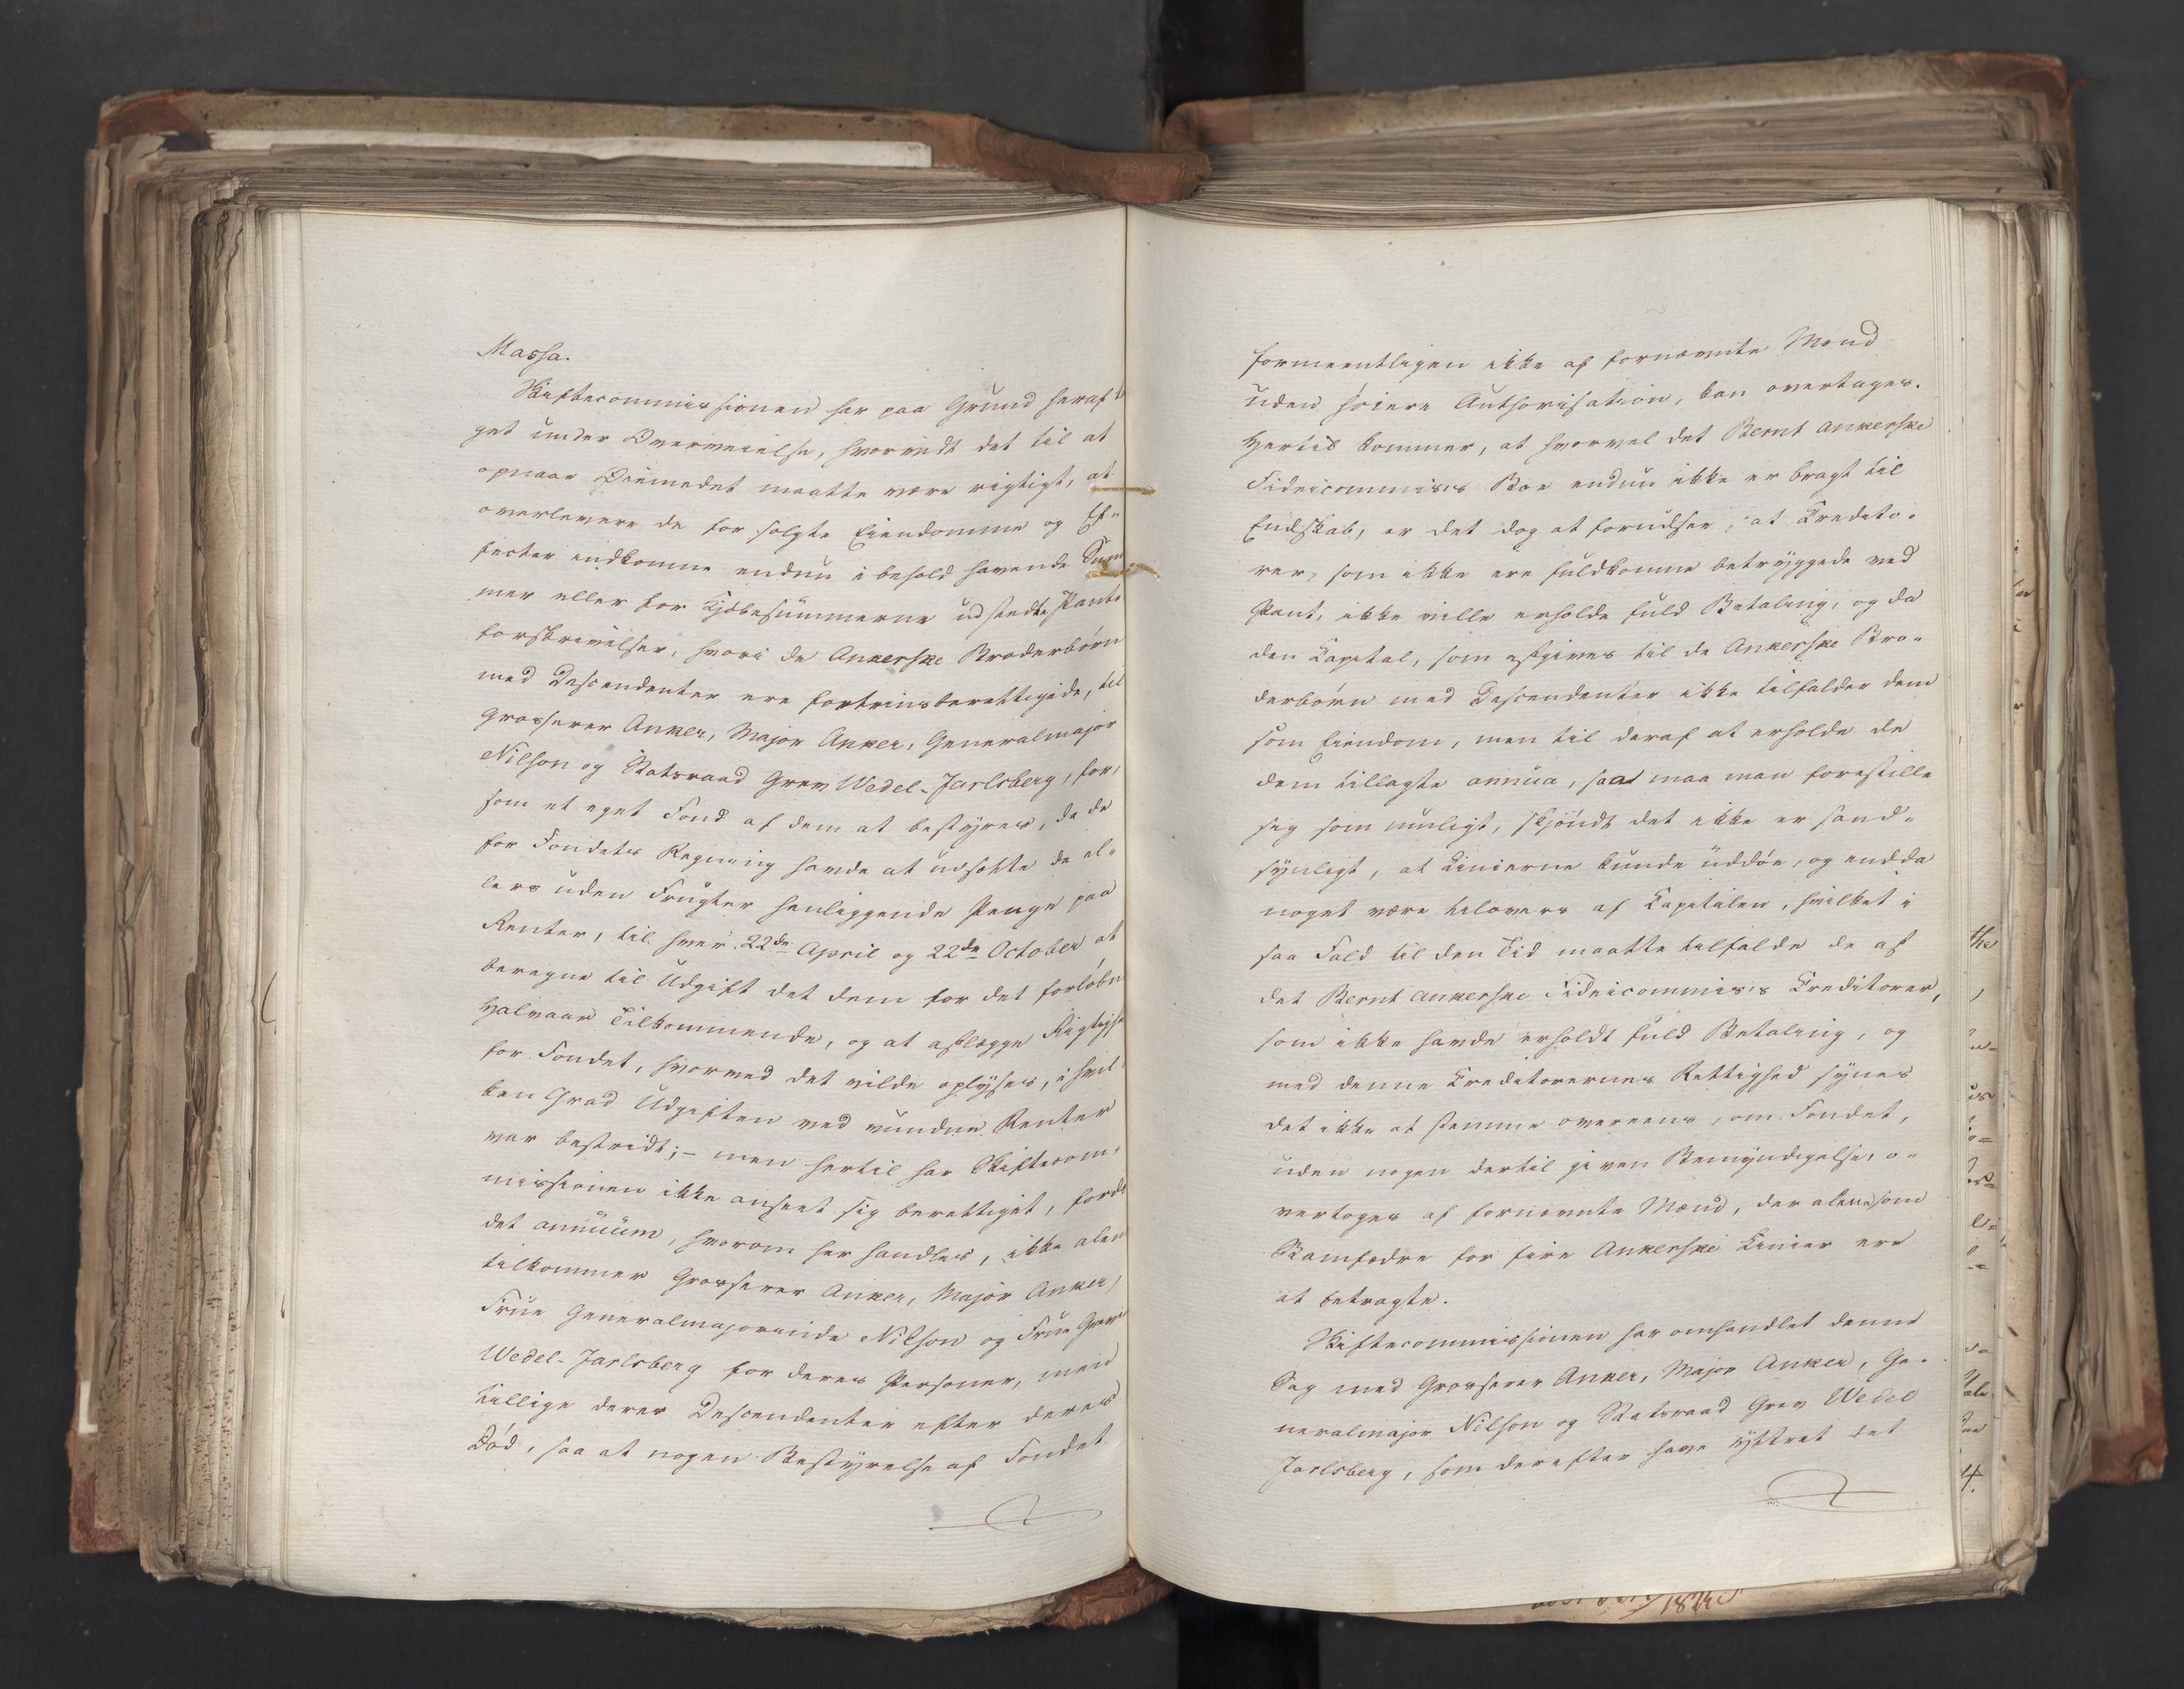 Massa.
Skiftecommissionen har paa Grund heraf ta
get under Overveielse, hvorvidt det til at
opnaae Øiemedet maatte være rigtigt, at
overlevere de for solgte Eiendomme og Ef-
fecter indkomne endnu i behold havende Sum
mer eller for Kjøbesummerne udstedte Pante
forskrivelser, hvori de Ankerske Broderbørn
med Descendenter ere fortrinsberettigede, til
Grosserer Anker, Major Anker, Generalmajor
Nilson og Statsraad Grev Wedel-Jarlsberg, for,
som et eget Fond af dem at bestyres, da de
for Fondets Regning havde at udsætte de el-
lers uden Frugter henliggende Penge paa
Renter, til hver 22de April og 22de October at
beregne til Udgift det dem for det forløbne
Halvaar Tilkommende, og at aflægge Rigtighed
for Fondet, hvorved det vilde oplyses, i hvil-
ken Grad Udgiften ved vundne Renter
var bestridt; - men hertil har Skiftecom-
missionen ikke anseet sig berettiget, fordi
det annuum, hvorom her handles, ikke alene
tilkommer Grosserer Anker, Major Anker,
Frue Generalmajorinde Nilson og Frue Grevinde
Wedel-Jarlsberg for deres Personer, men
tillige deres Descendenter efter deres
Død, saa at nogen Bestyrelse af Fondet
formeentligen ikke af fornævnte Mænd
uden høiere Authorisation, kan overtages.
Hertil kommer, at hvorvel det Bernt Ankerske
Fideicommis's Boe endnu ikke er bragt til
Endskab, er det dog at forudsee, at Credito-
rer, som ikke ere fuldkomne betryggede ved
Pant, ikke ville erholde fuld Betaling, og da
den Capital, som afgives til de Ankerske Bro-
derbørn med Descendenter ikke tilfalder dem
som Eiendom, men til deraf at erholde de
dem tillagte annua, saa maa man forestille
sig som muligt, skjøndt det ikke er sand-
synligt, at Linierne kunde uddøe, og endda
noget være tilovers af Capitalen, hvilket i
saa Fald til den Tid maatte tilfalde de af
det Bernt Ankerske Fideicommis's Creditorer,
som ikke havde erholdt fuld Betaling, og
med denne Creditorernes Rettighed synes
det ikke at stemme overeens, om Fondet,
uden nogen dertil given Bemyndigelse, o-
vertoges af fornævnte Mænd, der alene som
Stamfædre for fire Ankerske Linier ere
at betragte.
Skiftecommissionen har omhandlet denne
Sag med Grosserer Anker, Major Anker, Ge-
neralmajor Nilson og Statsraad Grev Wedel
Jarlsberg, som derefter have yttret det